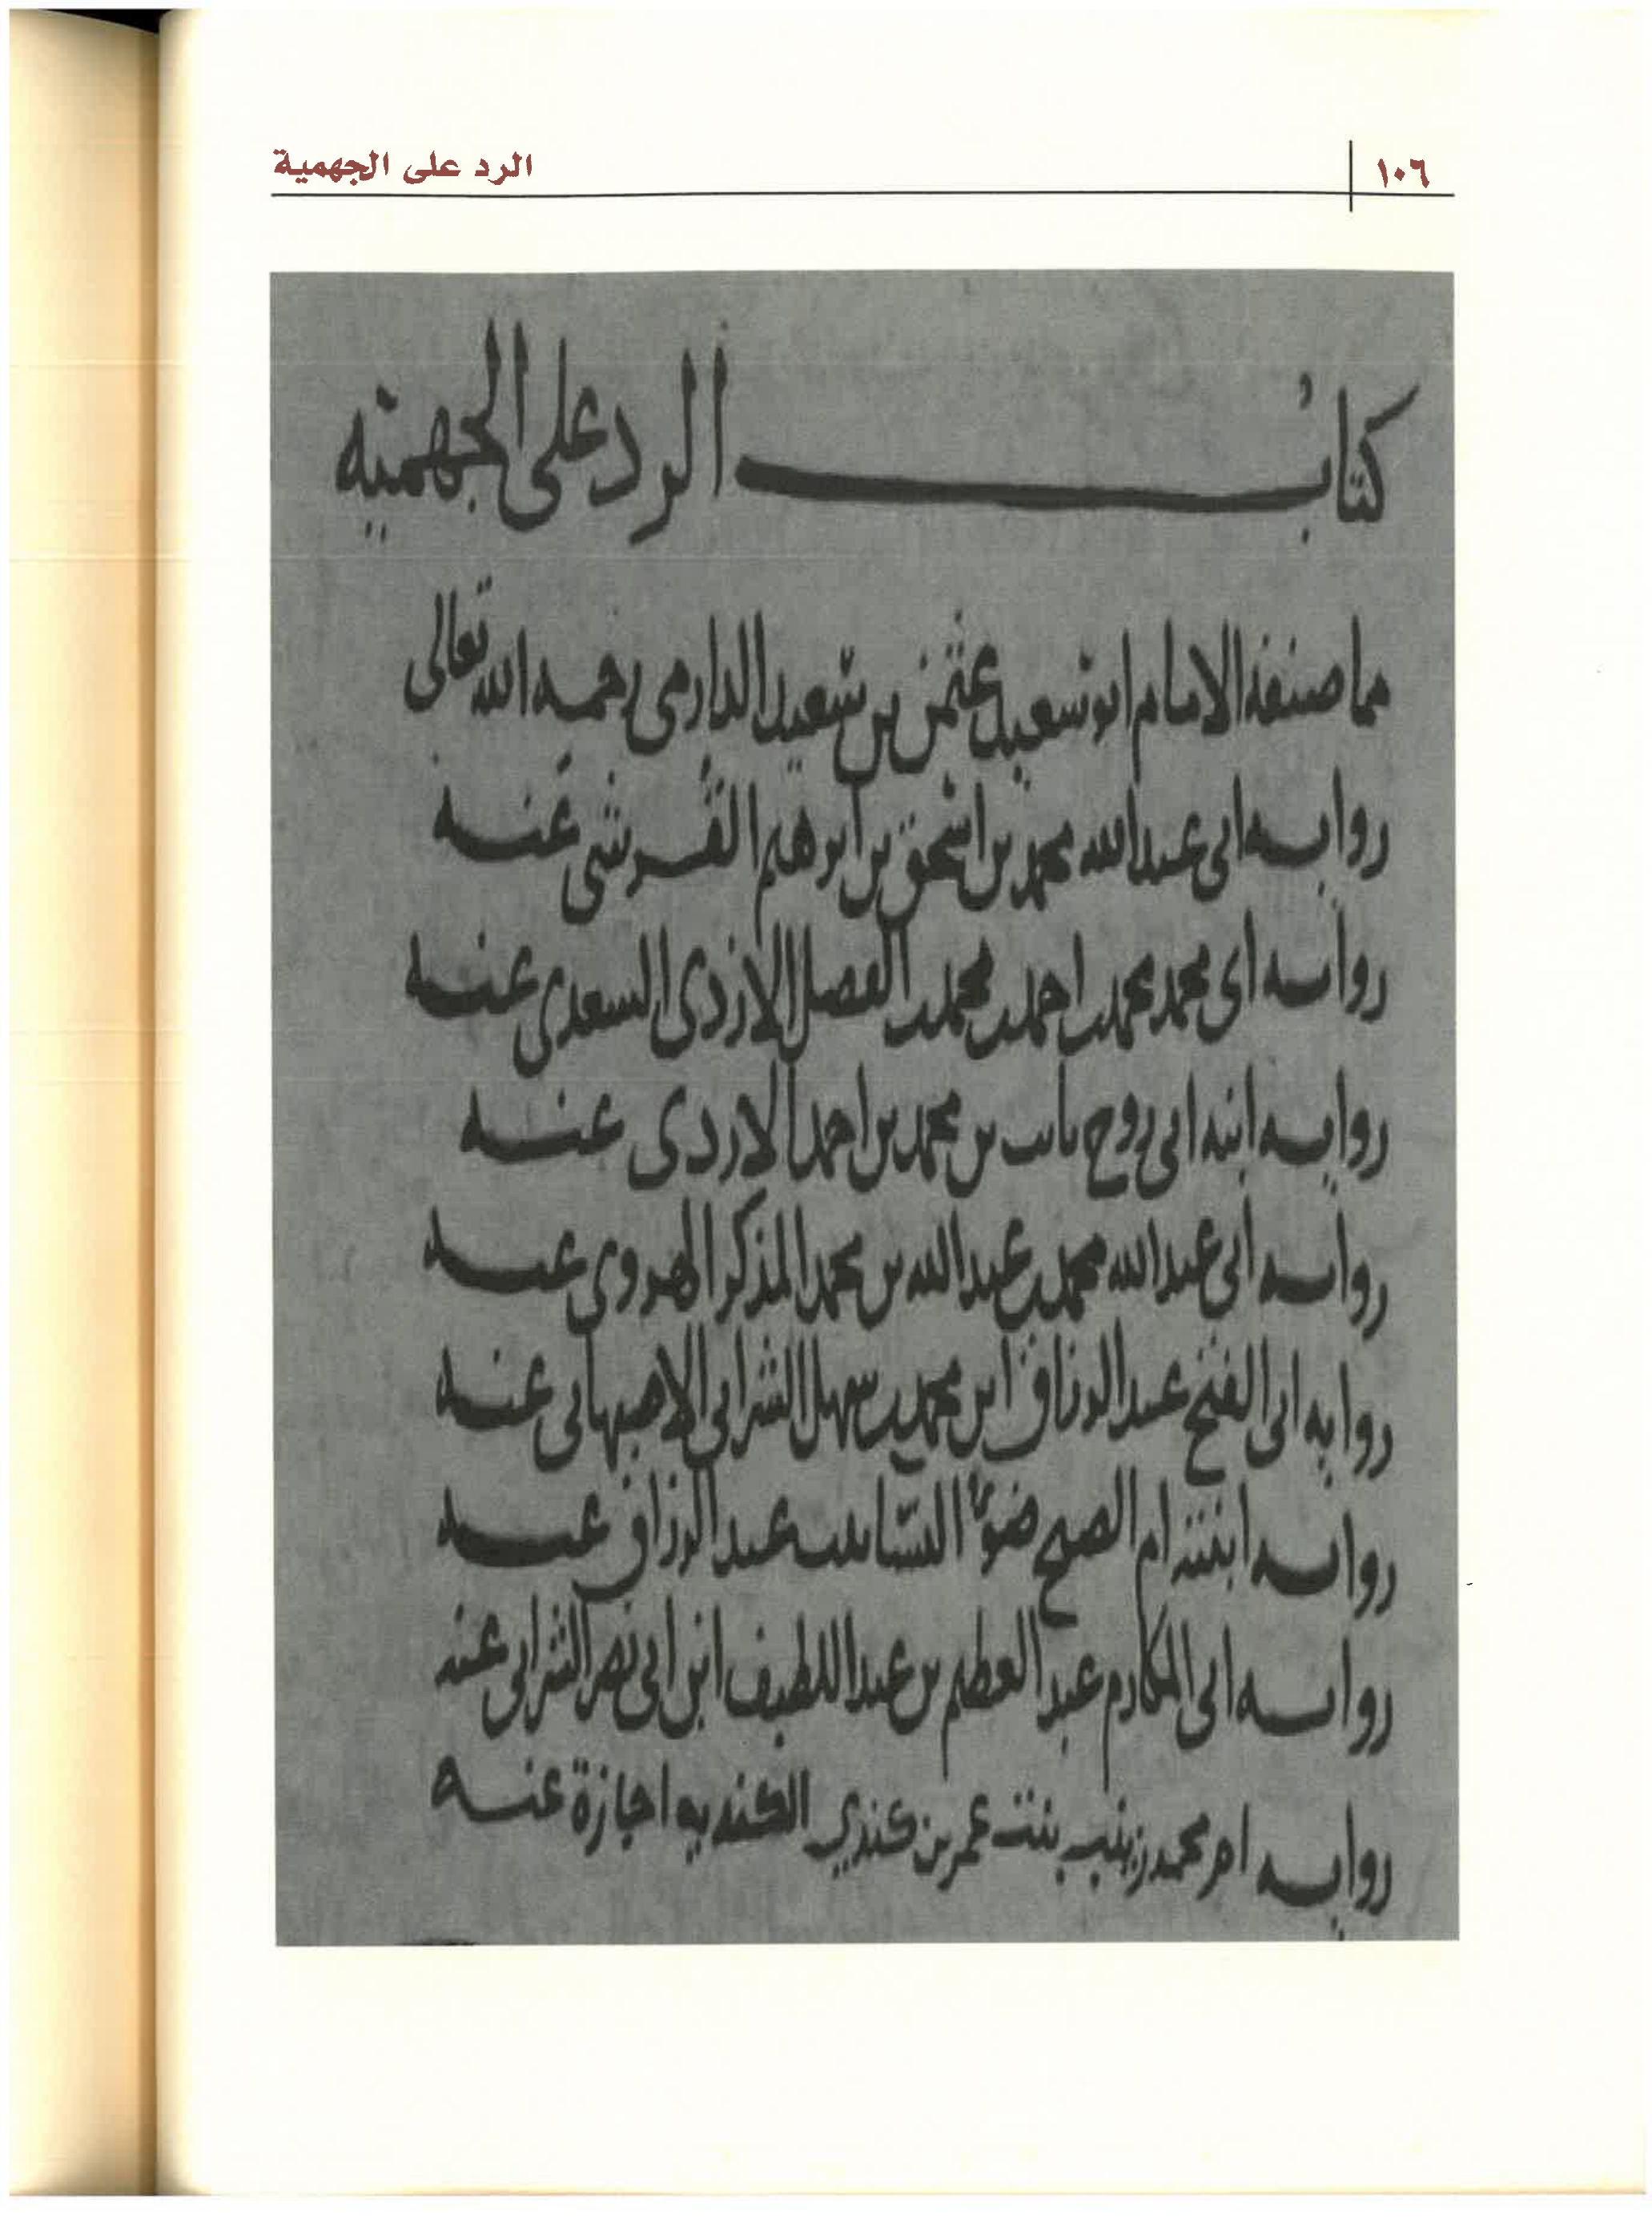 ١٠٦
الرد على الجهمية
كتاب الرد على الجهميه
مما صنفه الامام ابو سعيد عثمن بن سعيد الدارمى رحمه الله تعالى
روايه ابى عبد الله محمد بن اسحق بن ابرهيم القرشى عنه
روايه ابى محمد محمد بن احمد بن محمد بن الفضل الازدى السعدى عنه
روايه ابنه ابى روح ثابت بن محمد بن احمد الازدى عنه
روايه ابى عبد الله محمد بن عبد الله بن محمد المذكر الهروى عنه
روايه ابى الفتح عبد الرزاق ابن محمد بن سهل الشرابى الاصبهانى عنه
روايه ابنته ام الصبح ضوء النسا بنت عبد الرزاق عنه
روايه ابى المكارم عبد العظيم بن عبد اللطيف ابن ابى نصر الشرابى عنه
روايه ام محمد زينب بنت عمر بن كندي الكنديه اجازة عنه